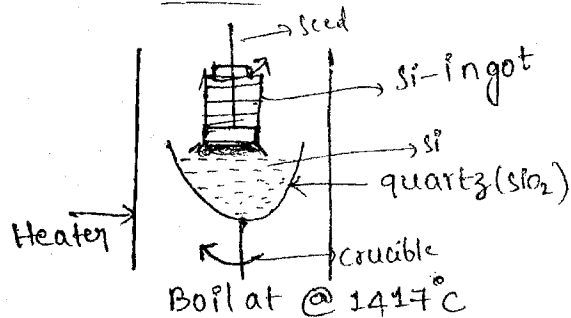 seed
Si-ingot
si
quartz(SiO₂)
Heater
crucible
Boil at @ 1417°C